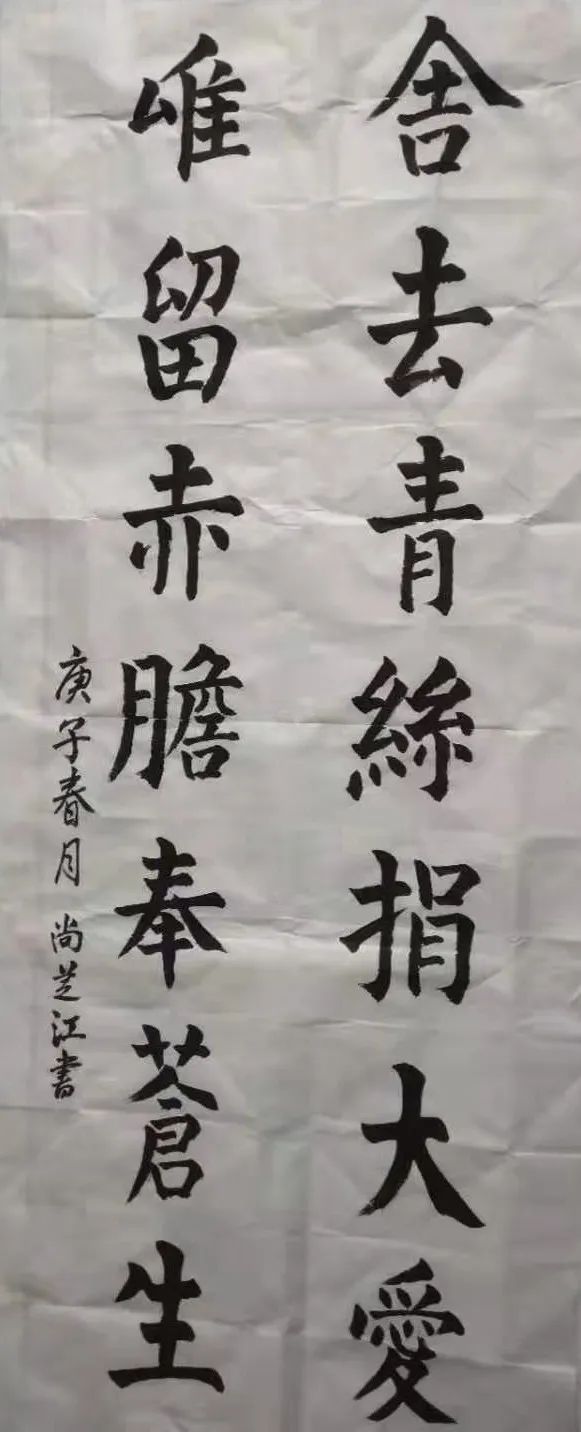 舎去青絲捐大愛
唯留赤膽奉蒼生
庚子春月 尚芝江書